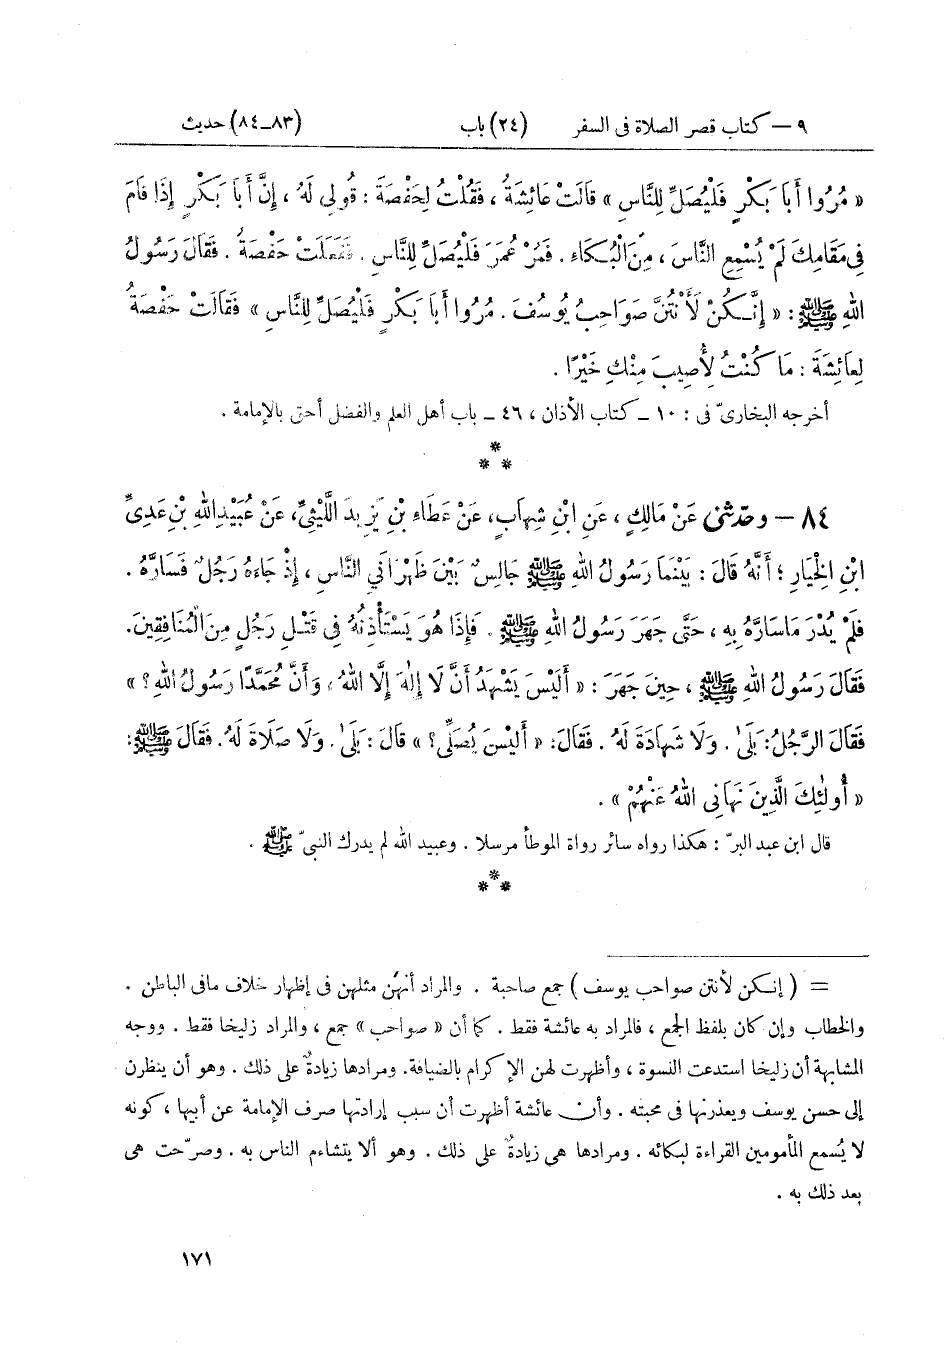 ٩ — كتاب قصر الصلاة فى السفر (٢٤) باب (٨٣–٨٤) حديث
« مُرُوا أَبَا بَكْرٍ فَلْيُصَلِّ لِلنَّاسِ » قَالَتْ عَائِشَةُ ، فَقُلْتُ لِحَفْصَةَ : قُولِى لَهُ ، إِنَّ أَبَا بَكْرٍ إِذَا قَامَ
فِى مَقَامِكَ لَمْ يُسْمِعِ النَّاسَ ، مِنَ الْبُكَاءِ . فَمُرْ عُمَرَ فَلْيُصَلِّ لِلنَّاسِ . فَفَعَلَتْ حَفْصَةُ . فَقَالَ رَسُولُ
اللهِ ﷺ : « إِنَّكُنَّ لَأَنْتُنَّ صَوَاحِبُ يُوسُفَ . مُرُوا أَبَا بَكْرٍ فَلْيُصَلِّ لِلنَّاسِ » فَقَالَتْ حَفْصَةُ
لِعَائِشَةَ : مَا كُنْتُ لِأُصِيبَ مِنْكِ خَيْرًا .
أخرجه البخارىّ فى : ١٠ ـ كتاب الأذان ، ٤٦ ـ باب أهل العلم والفضل أحق بالإمامة .
*
* *
٨٤ — وحدثنى عَنْ مَالِكٍ ، عَنِ ابْنِ شِهَابٍ، عَنْ عَطَاءِ بْنِ يَزِيدَ اللَّيْثِىِّ، عَنْ عُبَيْدِ اللهِ بْنِ عَدِىِّ
ابْنِ الْخِيَارِ ؛ أَنَّهُ قَالَ : بَيْنَمَا رَسُولُ اللهِ ﷺ جَالِسٌ بَيْنَ ظَهْرَانَيِ النَّاسِ ، إِذْ جَاءَهُ رَجُلٌ فَسَارَّهُ .
فَلَمْ يُدْرَ مَا سَارَّهُ بِهِ ، حَتَّى جَهَرَ رَسُولُ اللهِ ﷺ . فَإِذَا هُوَ يَسْتَأْذِنُهُ فِى قَتْلِ رَجُلٍ مِنَ الْمُنَافِقِينَ.
فَقَالَ رَسُولُ اللهِ ﷺ ، حِينَ جَهَرَ : « أَلَيْسَ يَشْهَدُ أَنْ لَا إِلٰهَ إِلَّا اللهُ ، وَأَنَّ مُحَمَّدًا رَسُولُ اللهِ ؟ »
فَقَالَ الرَّجُلُ: بَلَىٰ . وَلَا شَهَادَةَ لَهُ . فَقَالَ: « أَلَيْسَ يُصَلِّى؟ » قَالَ : بَلَىٰ . وَلَا صَلَاةَ لَهُ. فَقَالَ ﷺ:
« أُولٰئِكَ الَّذِينَ نَهَانِى اللهُ عَنْهُمْ » .
قال ابن عبد البرّ : هكذا رواه سائر رواة الموطأ مرسلا . وعبيد الله لم يدرك النبىّ ﷺ .
*
* *
= ( إنكن لأنتن صواحب يوسف ) جمع صاحبة . والمراد أنهنّ مثلهن فى إظهار خلاف مافى الباطن .
والخطاب وإن كان بلفظ الجمع ، فالمراد به عائشة فقط . كما أن « صواحب » جمع ، والمراد زليخا فقط . ووجه
المشابهة أن زليخا استدعت النسوة ، وأظهرت لهن الإكرام بالضيافة. ومرادها زيادةٌ على ذلك . وهو أن ينظرن
إلى حسن يوسف ويعذرنها فى محبته . وأن عائشة أظهرت أن سبب إرادتها صرف الإمامة عن أبيها ، كونه
لا يُسمع المأمومين القراءة لبكائه . ومرادها هى زيادةٌ على ذلك . وهو ألا يتشاءم الناس به . وصرّحت هى
بعد ذلك به .
١٧١